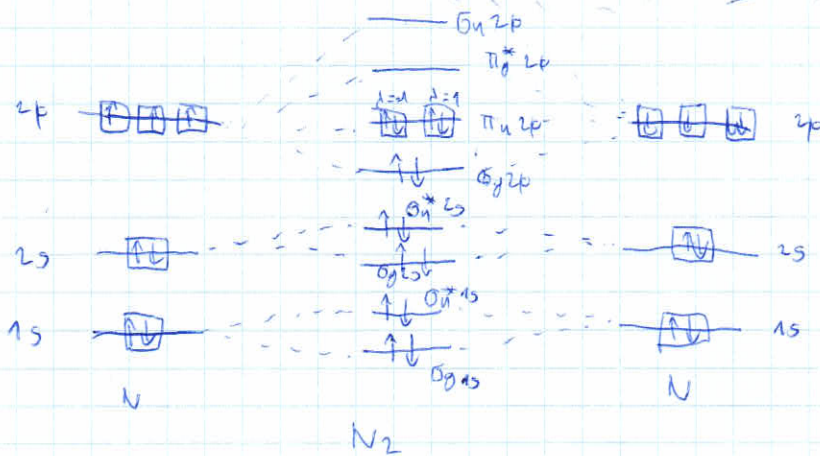 σu 2p
πg* 2p
2p ↑ ↑ ↑ λ=-1 λ=1 ↑↓ ↑↓ πu 2p ↓ ↓ ↓ 2p
↑↓ σg 2p
σu* 2s
2s ↑↓ ↑↓ ↑↓ 2s
↑↓
σg 2s
σu* 1s
1s ↑↓ ↑↓ ↑↓ 1s
↑↓
σg 1s
N N
N2